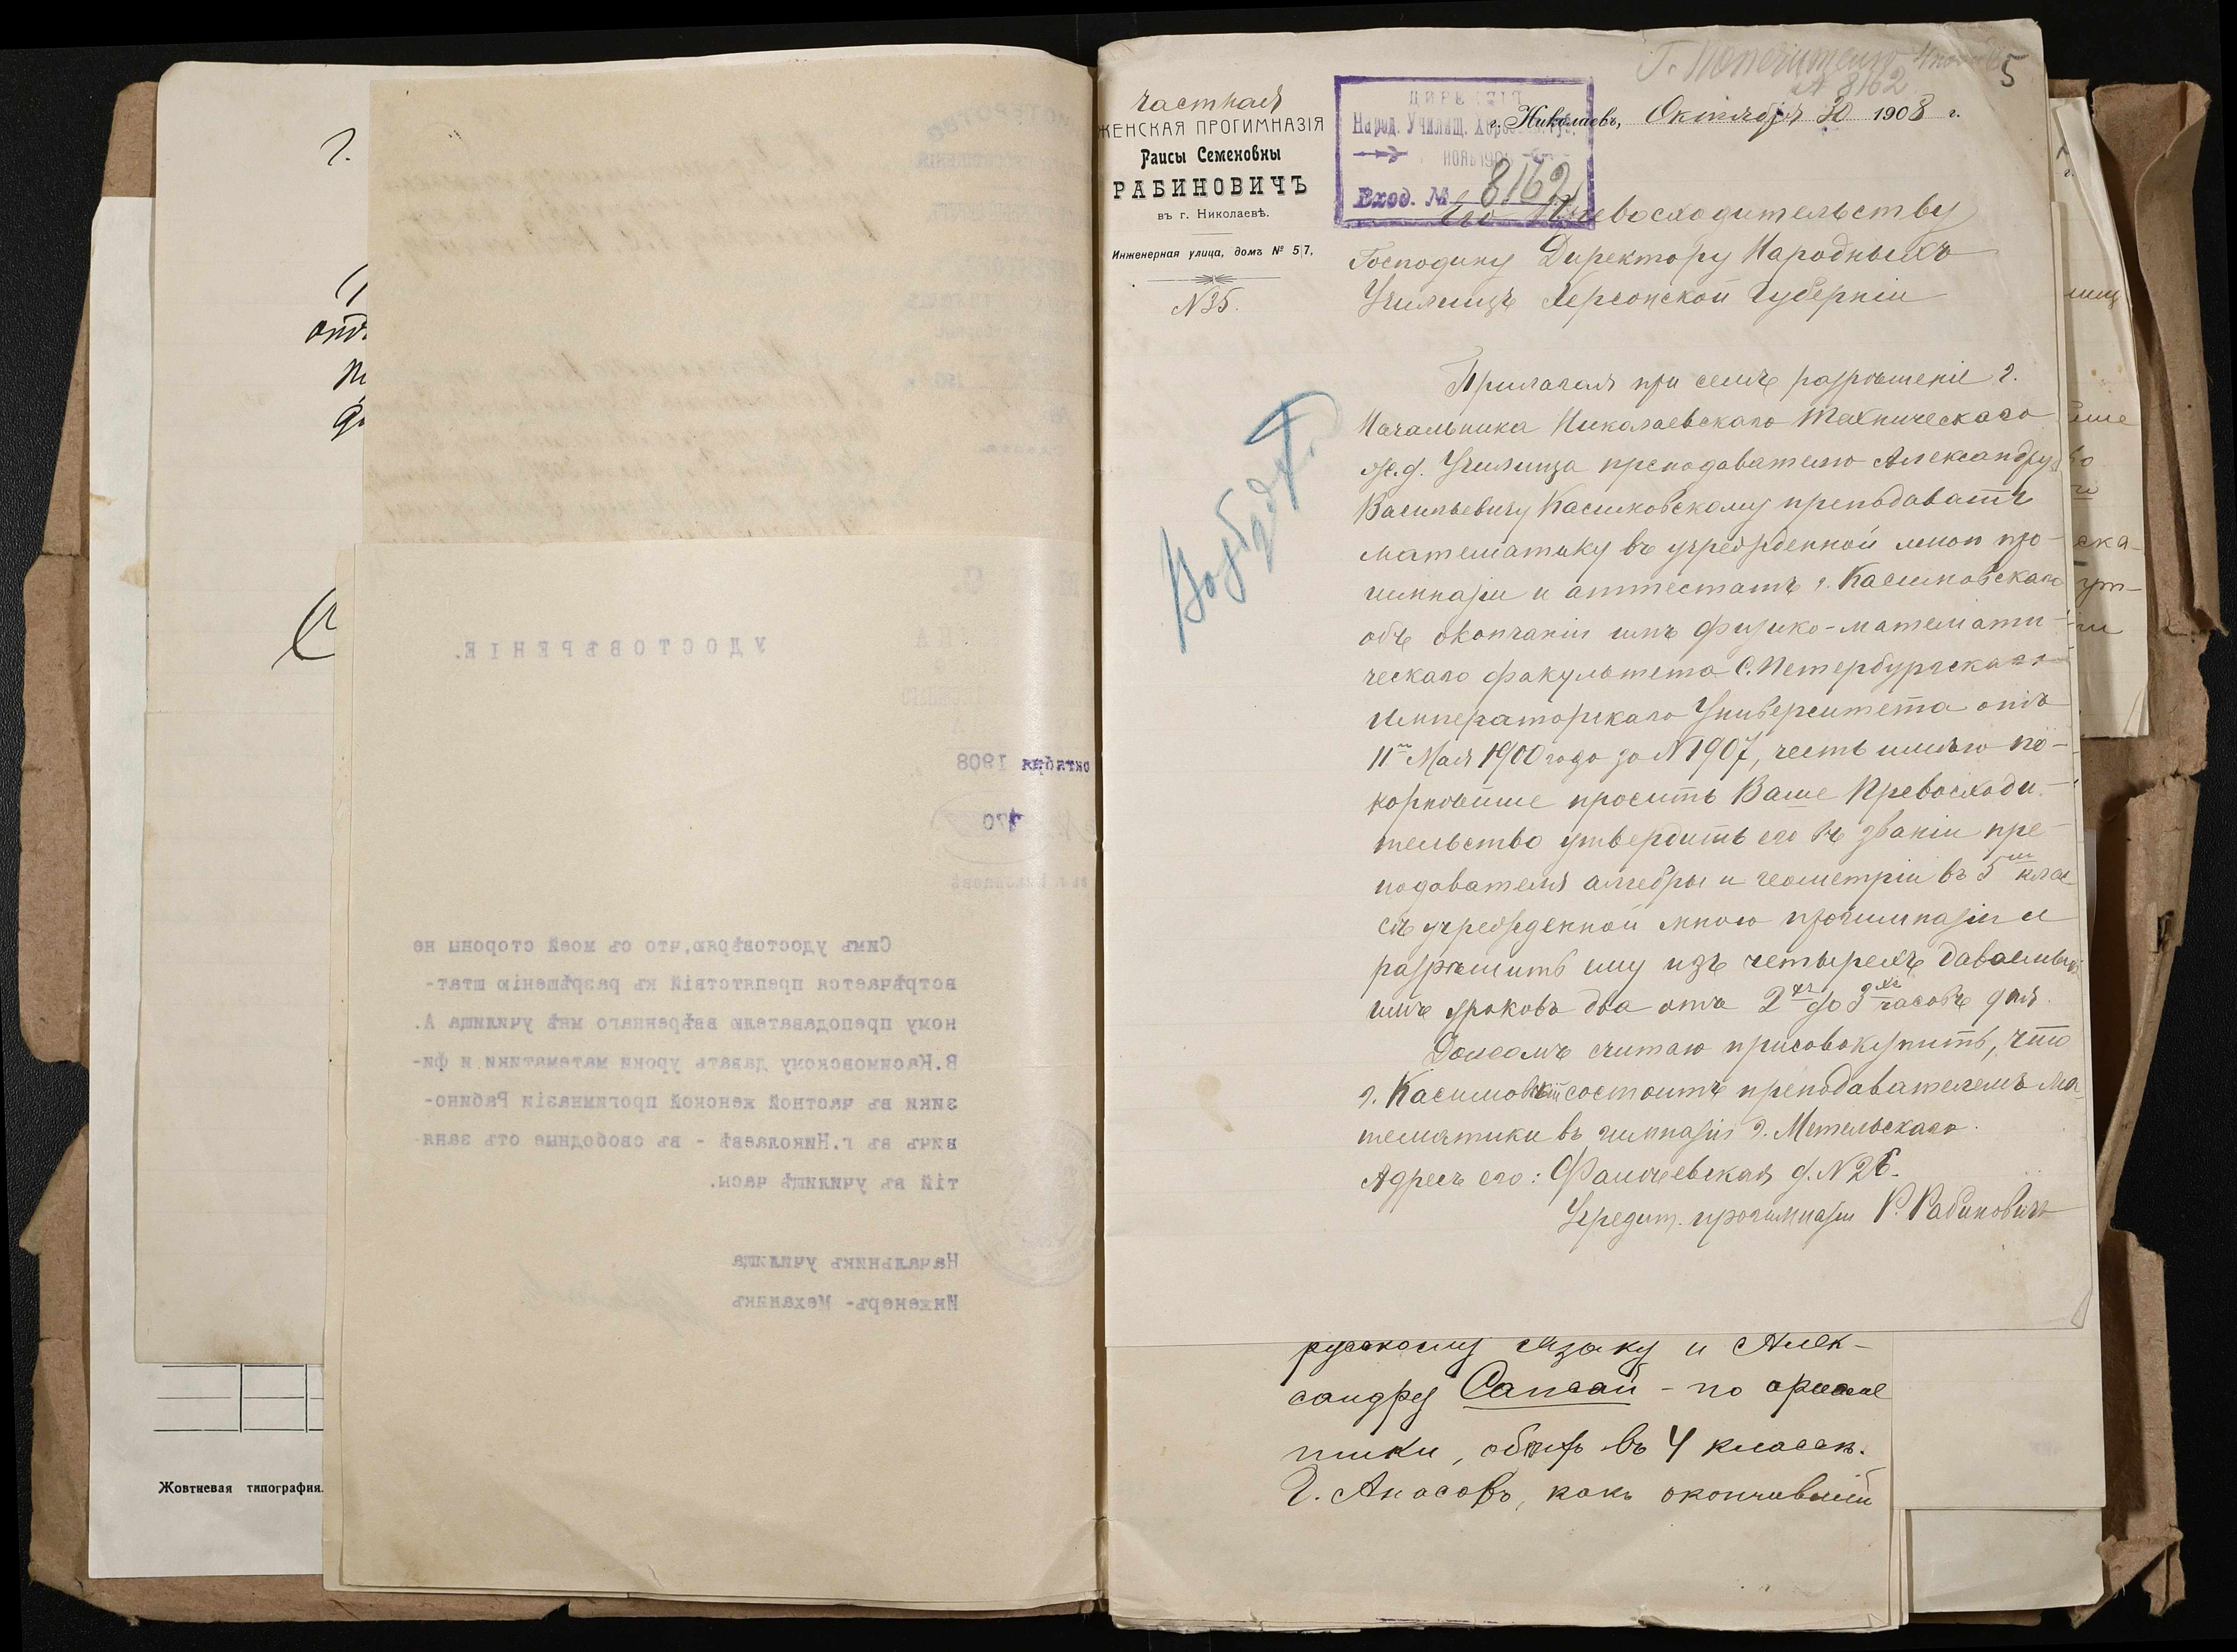 УДОСТОВѢРЕНІЕ.
октября 1908
470
Симъ удостовѣряю,что съ моей стороны не
встрѣчается препятствій къ разрѣшенію штат-
ному преподавателю ввѣреннаго мнѣ училища А.
В.Касимовскому давать уроки математики и фи-
зики въ частной женской прогимназіи Рабино-
вичъ въ г.Николаевѣ - въ свободные отъ заня-
тій въ училищѣ часы.
Начальникъ училища
Инженеръ- Механикъ
Жовтневая типография.
5
Г. Попечителю
8162
частная
ЖЕНСКАЯ ПРОГИМНАЗІЯ
Раисы Семеновны
РАБИНОВИЧЪ
въ г. Николаевѣ.
Инженерная улица, домъ № 57.
N 35.
ДИРЕКЦІЯ
Народ. Училищ. Херс. губ.
НОЯБ 190
Вход. № 8162
г. Николаевъ, Октября 30 1908 г.
Его Превосходительству
Господину Директору Народныхъ
Училищъ Херсонской Губерніи
Прилагая при семъ разрѣшеніе г.
Начальника Николаевскаго Техническаго
ж.д. Училища преподавателю Александру
Васильевичу Касимовскому преподавать
математику въ учрежденной мною про-
гимназіи и аттестатъ г. Касимовскаго
объ окончаніи имъ физико-математи-
ческаго факультета С.Петербургскаго
Императорскаго Университета отъ
11го Мая 1900 года за N 1907, честь имѣю по-
корнѣйше просить Ваше Превосходи-
тельство утвердить его въ званіи пре-
подавателя алгебры и геометріи въ 5мъ клас-
сѣ учрежденной мною прогимназіи и
разрѣшить ему изъ четырехъ даваемыхъ
имъ уроковъ два отъ 2хъ до 3хъ часовъ дня.
Долгомъ считаю присовокупить, что
г. Касимовскій состоитъ преподавателемъ ма-
тематики въ гимназіи г. Метельскаго.
Адресъ его: Фалѣевская д. N 26.
Учредит. прогимназіи Р. Рабиновичъ
русскому языку и Алек-
сандру Сапсай - по ариѳме
тики, оба въ 4 классѣ.
Г. Анасовъ, какъ окончившій